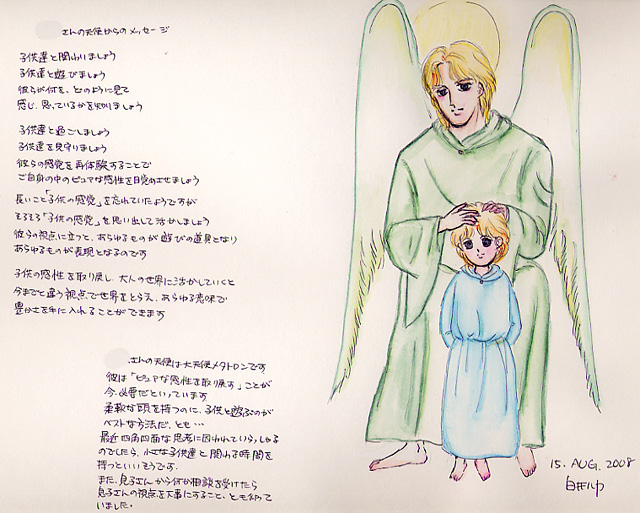 さんの天使からのメッセージ
子供達と関わりましょう
子供達と遊びましょう
彼らが何を、どのように見て
感じ、思っているかを知りましょう
子供達と過ごしましょう
子供達を見守りましょう
彼らの感覚を再体験することで
ご自身の中のピュアな感性を目覚めさせましょう
長いこと「子供の感覚」を忘れていたようですが
そろそろ「子供の感覚」を思い出して活かしましょう
彼らの視点に立つと、あらゆるものが遊びの道具となり
あらゆるものが表現となるのです
子供の感性を取り戻し、大人の世界に活かしていくと
今までと違う視点で世界をとらえ、あらゆる意味で
豊かさを手に入れることができます
さんの天使は大天使メタトロンです
彼は「ピュアな感性を取り戻す」ことが
今、必要だといっています
柔軟な頭を持つのに、子供と遊ぶのが
ベストな方法だ、とも…
最近四角四面な思考に囚われていらっしゃる
のでしたら、小さな子供達と関わる時間を
持つといいそうです。
また、息子さんから何か相談を受けたら
息子さんの視点を大事にすること、とも仰って
いました。
15. AUG. 2008